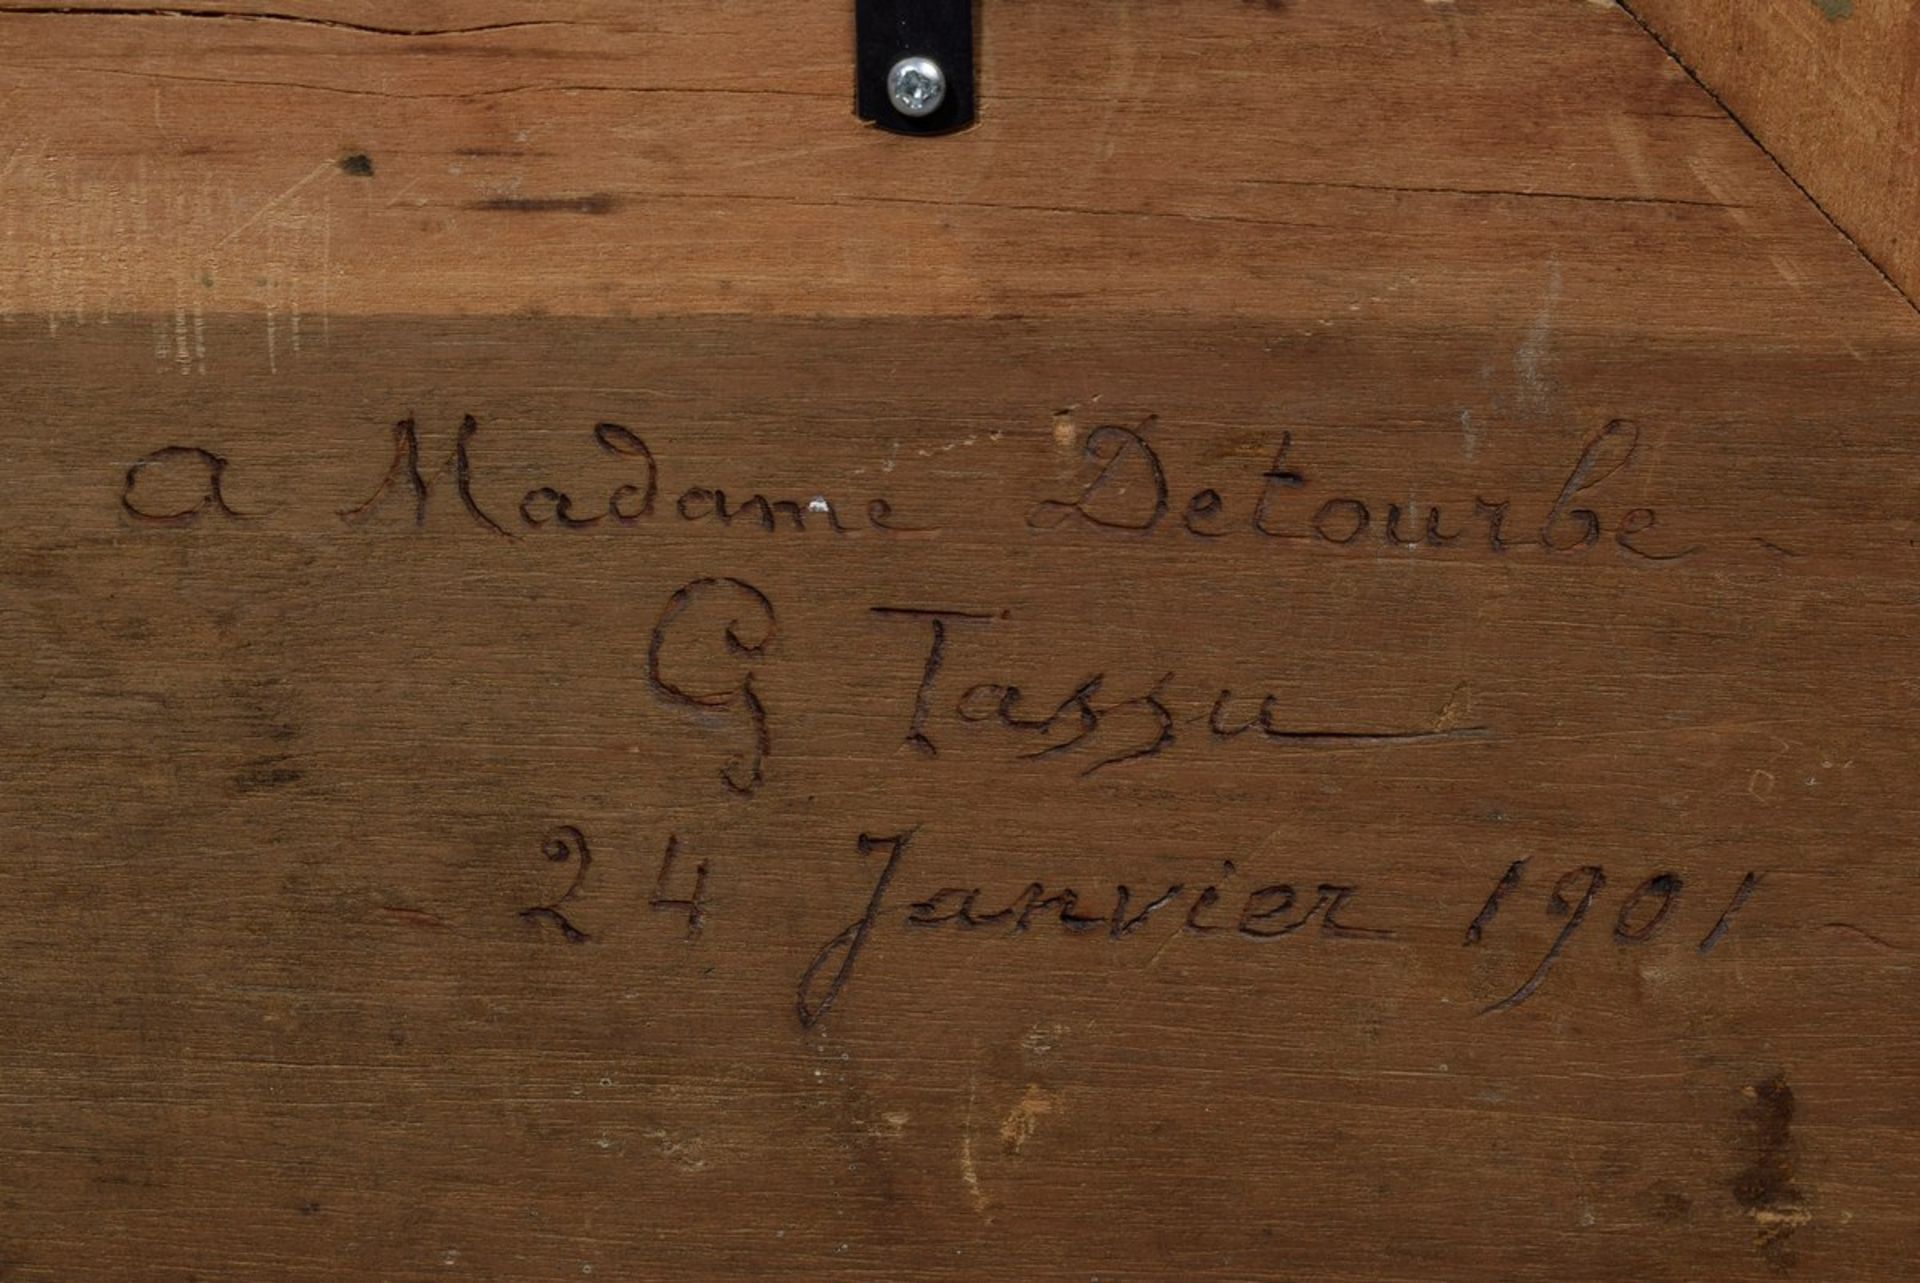 a Madame Detourbe
G Tassu
24 Janvier 1901